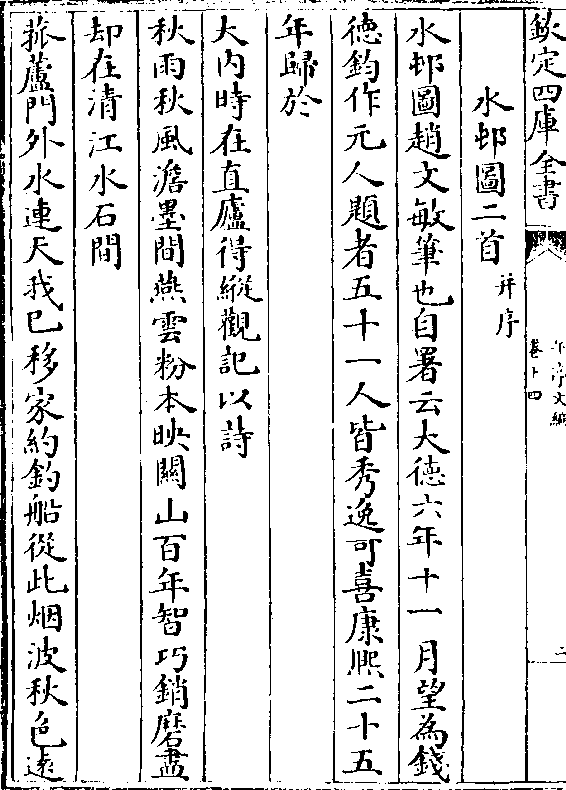 欽定四庫全書
午亭文編
卷十四
二
水邨圖二首并序
水邨圖趙文敏筆也自署云大德六年十一月望為錢
德鈞作元人題者五十一人皆秀逸可喜康熙二十五
年歸於
大內時在直廬得縱觀記以詩
秋雨秋風澹墨間燕雲粉本映關山百年智巧銷磨盡
却在清江水石間
菰蘆門外水連天我已移家約釣船從此烟波秋色遠